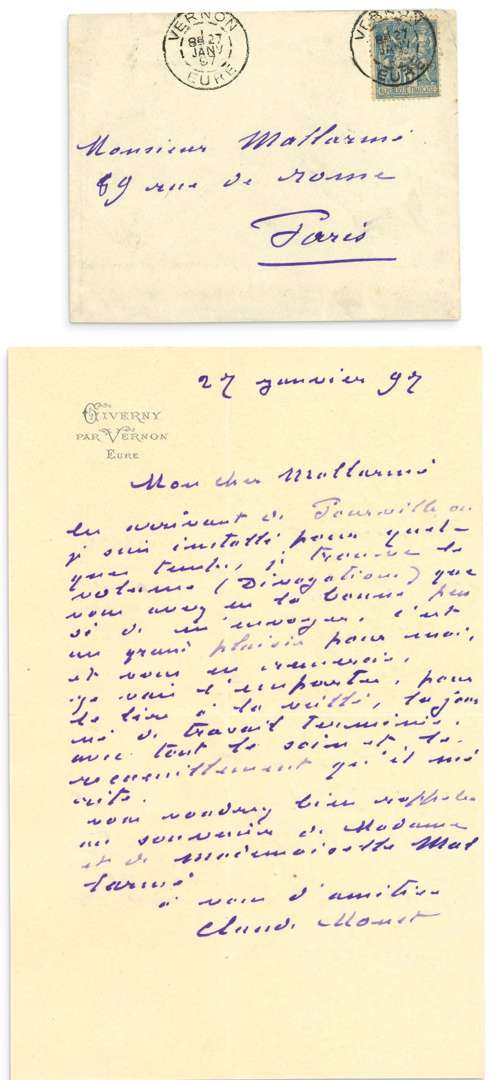 VERNON
1
8E 27
JANV
97
EURE
VERNON
27
JANV
97
EURE
REPUBLIQUE FRANÇAISE
Monsieur Mallarmé
89 rue de rome
Paris
27 janvier 97
GIVERNY
PAR VERNON
EURE
Mon cher Mallarmé
En arrivant de Pourville ou
je suis installé pour quel-
que temps, je trouve le
volume (Divagations) que
vous avez eu la bonne pen
sé de m'envoyer, c'est
un grand plaisir pour moi,
et vous en remercie.
je vais l'emporter, pour
le lire à la veillé, la jour
né de travail terminée.
avec tout le soin et le
recueillement qu'il mé
rite.
vous voudrez bien rappeler
au souvenir de Madame
et de mademoiselle Mal
larmé
à vous d'amitié
Claude Monet